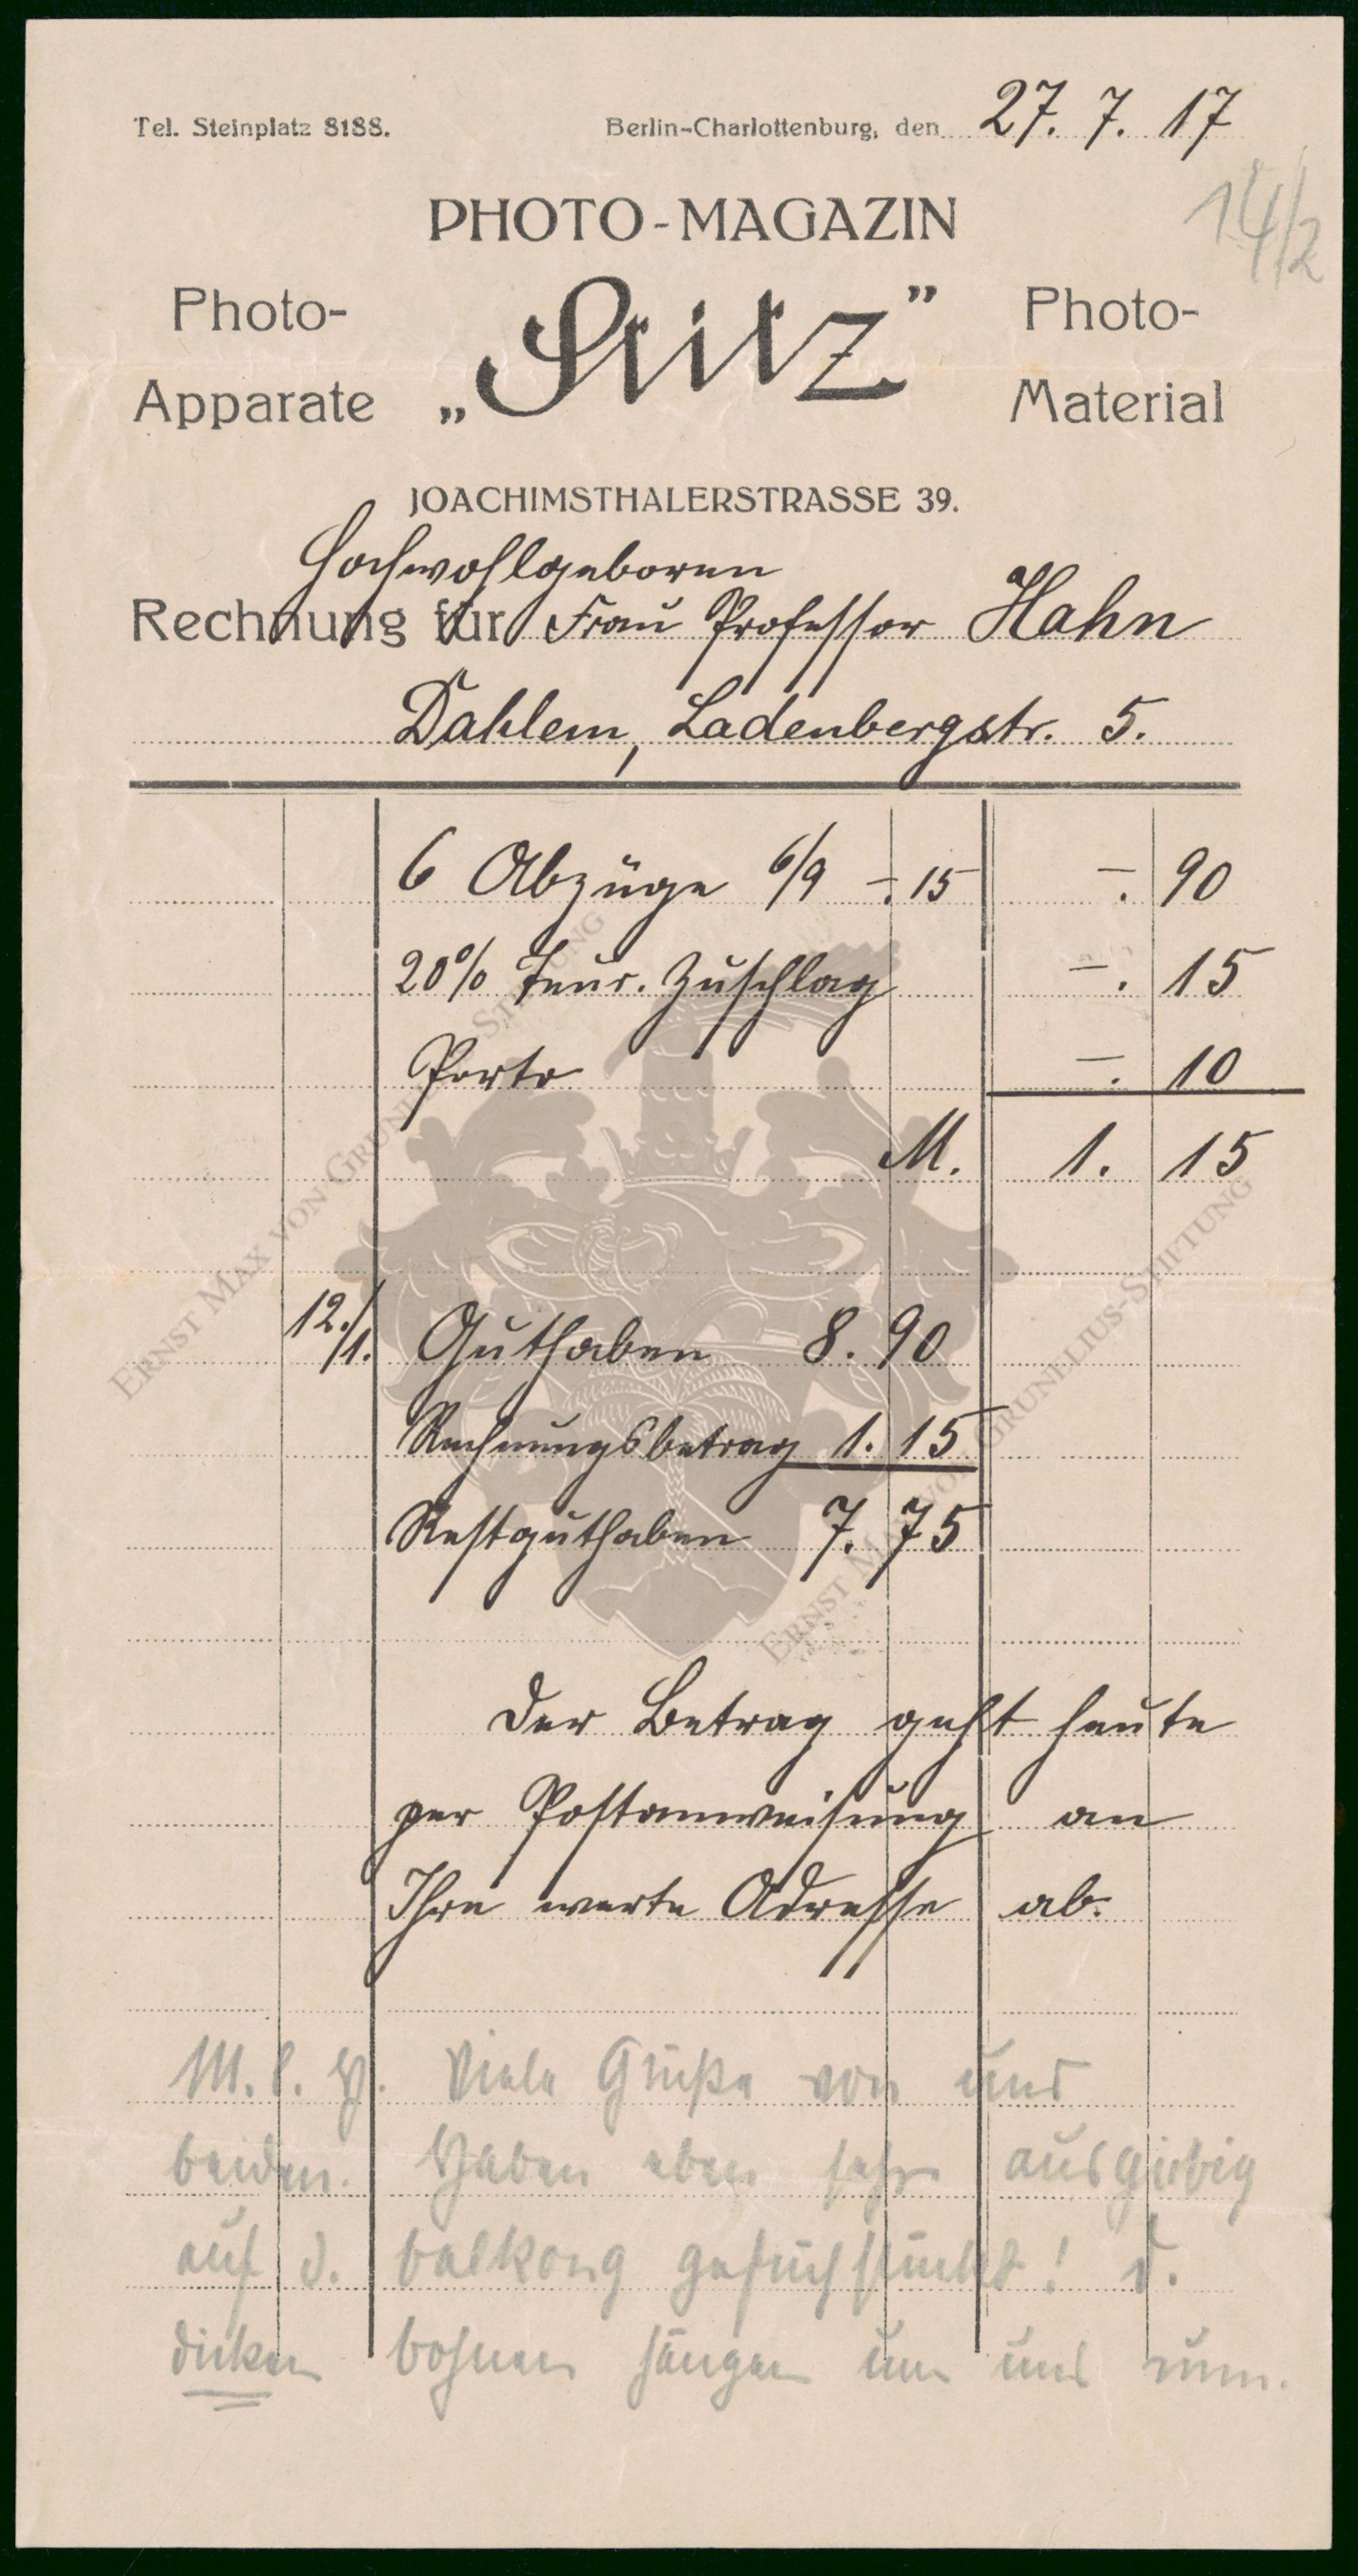 Tel. Steinplatz 8188. Berlin-Charlottenburg, den 27. 7. 17
14/2
PHOTO-MAGAZIN
Photo-Apparate „Stitz” Photo-Material
JOACHIMSTHALERSTRASSE 39.
Hochwohlgeboren
Rechnung für Frau Professor Hahn
Dahlem, Ladenbergstr. 5.
6 Abzüge 6/9 -.15 -. 90
20% Teur. Zuschlag -. 15
Porto -. 10
M. 1. 15
12./1. Guthaben 8.90
Rechnungsbetrag 1.15
Restguthaben 7.75
Der Betrag geht heute
per Postanweisung an
Ihre werte Adresse ab.
M. l. H. Viele Grüße von uns
beiden. Haben eben sehr ausgiebig
auf d. balkong gefrühstückt! d.
dicken bohnen hängen um uns rum.
ERNST MAX VON GRUNELIUS-STIFTUNG
ERNST MAX VON GRUNELIUS-STIFTUNG